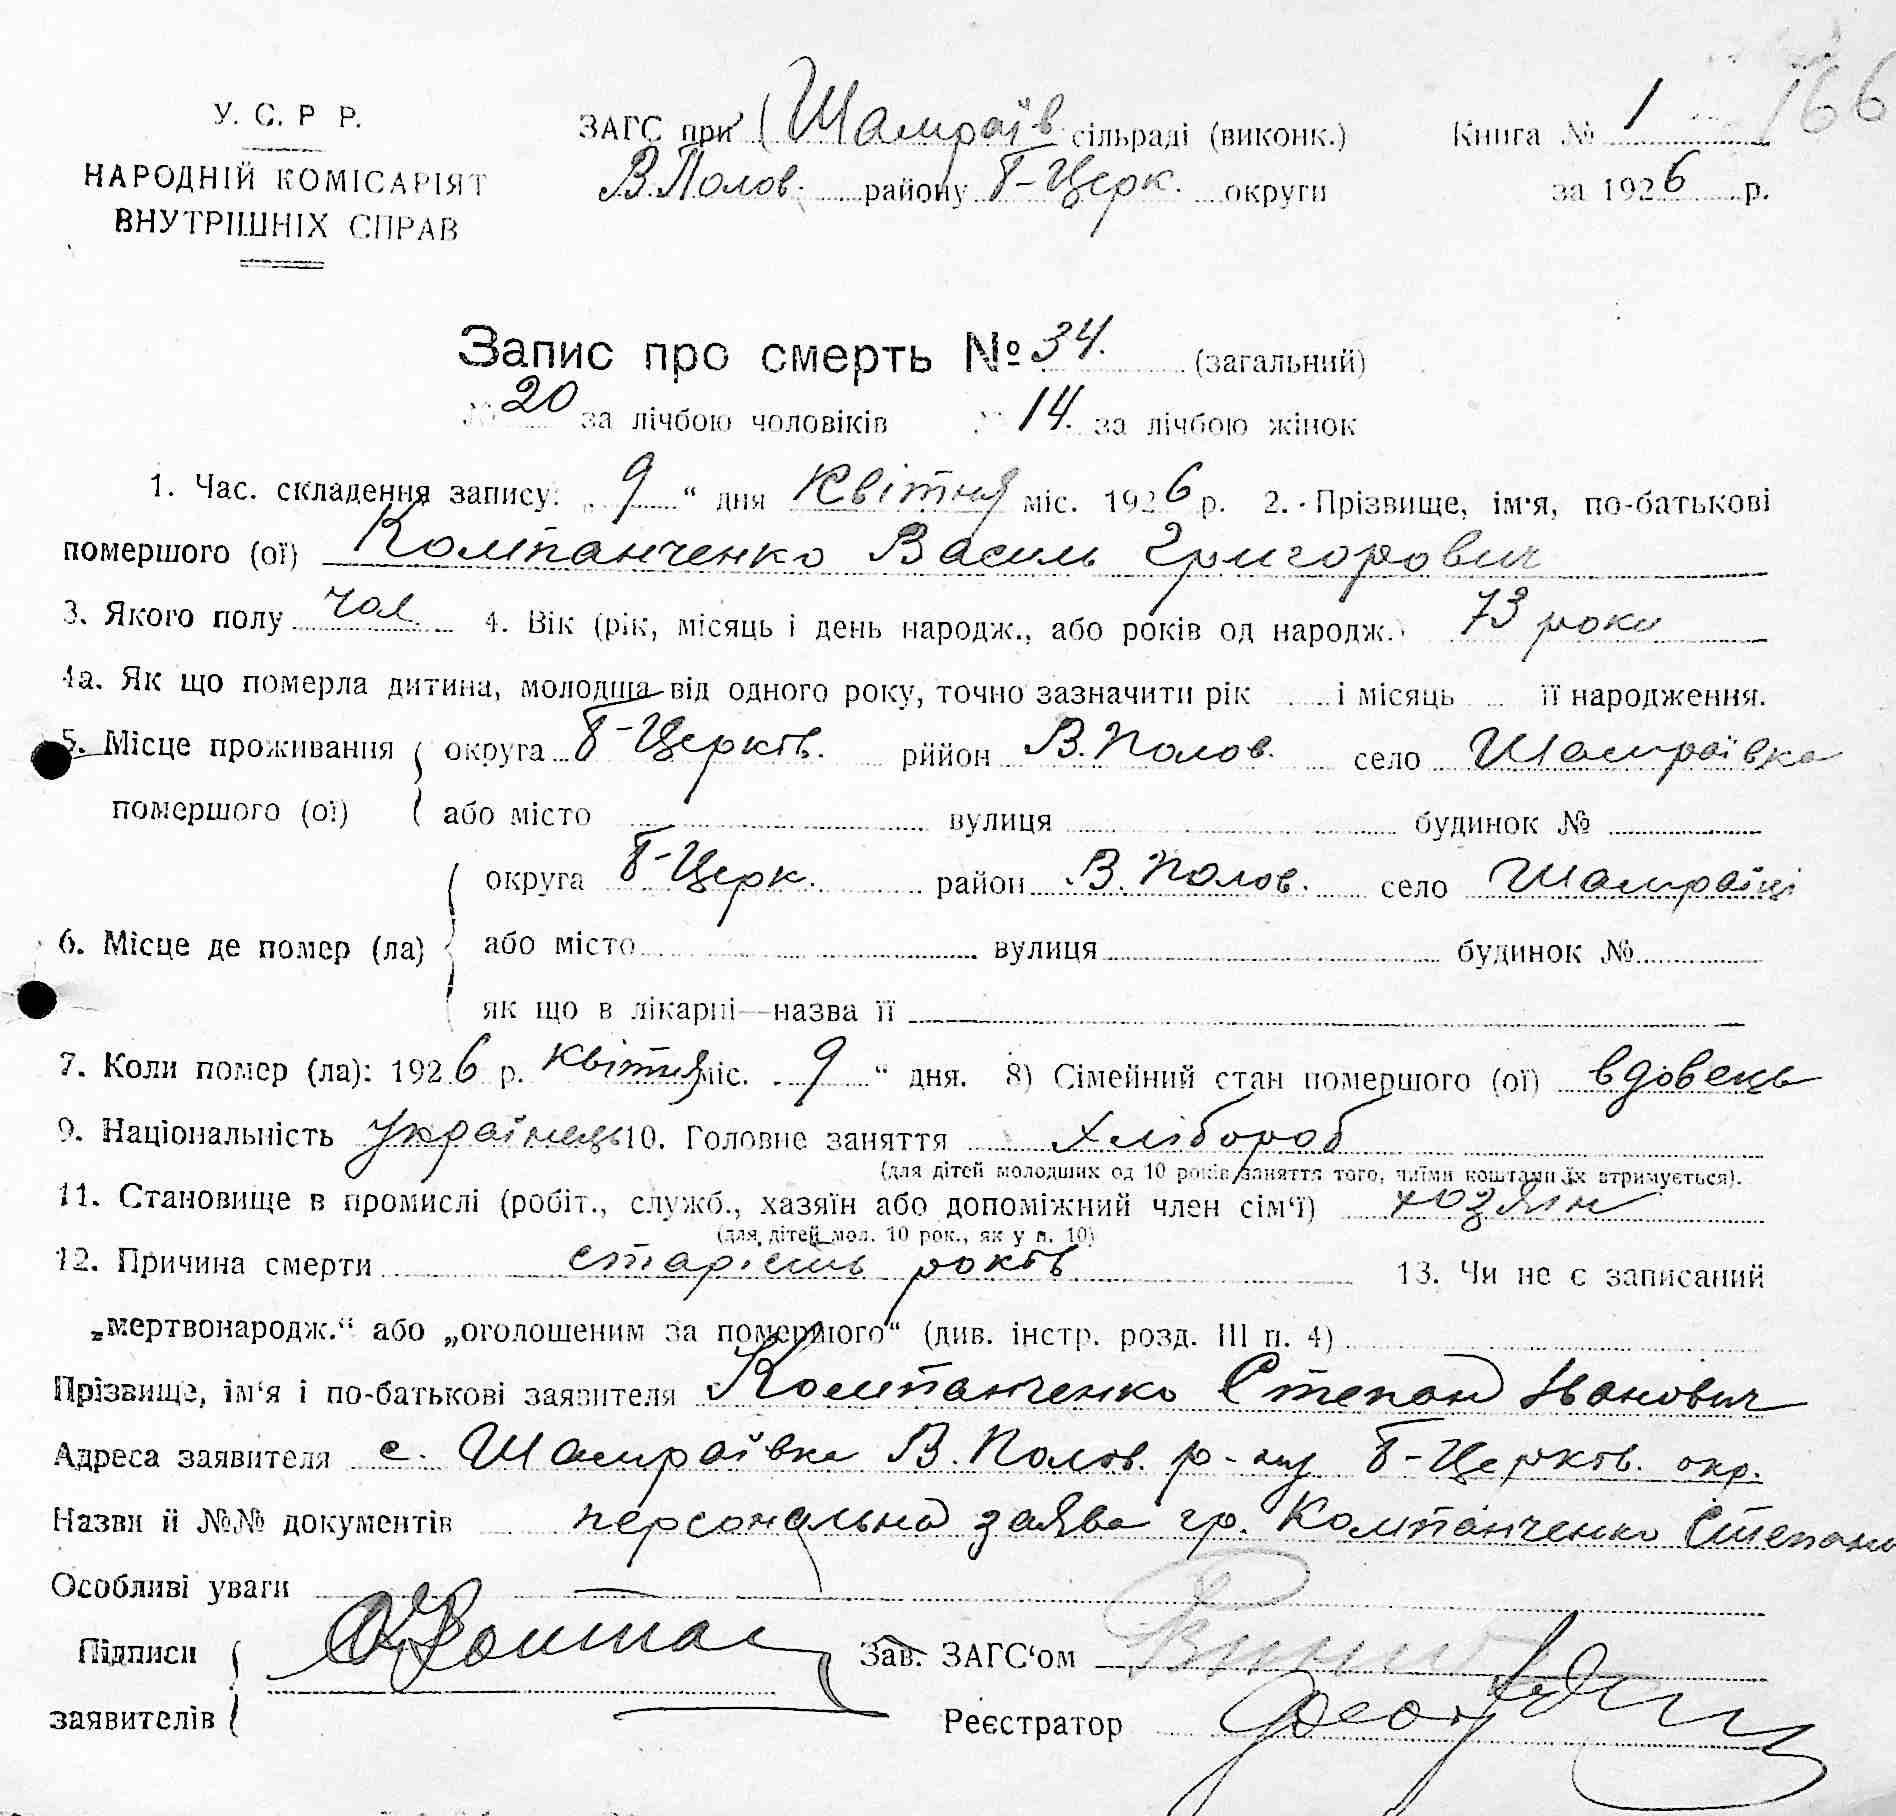 У. С. Р Р.
НАРОДНІЙ КОМІСАРІЯТ
ВНУТРІШНІХ СПРАВ
ЗАГС при Шамраїв сільраді (виконк.) Книга № 1 166
В.Полов. району Б-Церк. округи за 1926 р.
Запис про смерть № 34. (загальний)
№ 20 за лічбою чоловіків № 14. за лічбою жінок
1. Час. складення запису: „ 9 “ дня Квітня міс. 1926 р. 2. Прізвище, ім'я, по-батькові
помершого (ої) Компанченко Василь Григорович
3. Якого полу чол. 4. Вік (рік, місяць і день народж., або років од народж.) 73 роки
4а. Як що померла дитина, молодша від одного року, точно зазначити рік і місяць її народження.
5. Місце проживання округа Б-Церків. рййон В.Полов. село Шамраївка
помершого (ої) або місто вулиця будинок №
округа Б-Церк. район В.Полов. село Шамраївці
6. Місце де помер (ла) або місто вулиця будинок №
як що в лікарні—назва її
7. Коли помер (ла): 1926 р. квітня міс. „ 9 “ дня. 8) Сімейний стан помершого (ої) вдовець
9. Національність Українець 10. Головне заняття хлібороб
(для дітей молодших од 10 років заняття того, чиїми коштами їх втримується).
11. Становище в промислі (робіт., служб., хазяїн або допоміжний член сім'ї) хозяїн
(для дітей мол. 10 рок., як у п. 10)
12. Причина смерти старість років 13. Чи не є записаний
„мертвонародж.“ або „оголошеним за помершого“ (див. інстр. розд. III п. 4)
Прізвище, ім'я і по-батькові заявителя Компанченко Степан Іванович
Адреса заявителя с. Шамраївка В.Полов. р-ну Б-Церків. окр.
Назви й №№ документів персональна заява гр. Компанченко Степана
Особливі уваги
Підписи Зав. ЗАГС'ом
заявителів Реєстратор